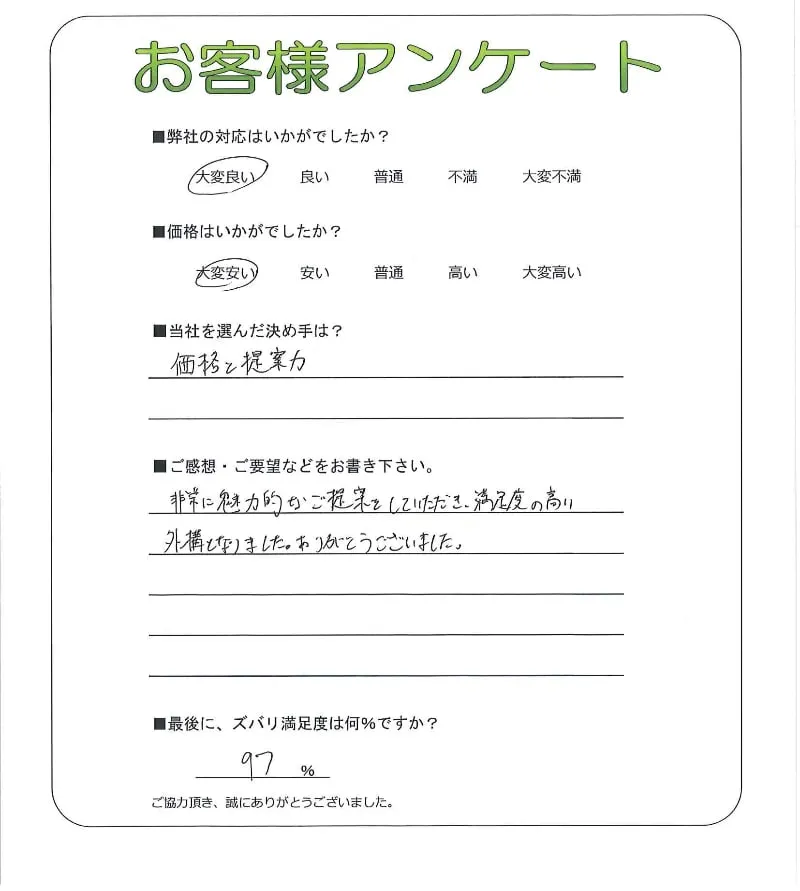 お客様アンケート
■弊社の対応はいかがでしたか？
大変良い 良い 普通 不満 大変不満
■価格はいかがでしたか？
大変安い 安い 普通 高い 大変高い
■当社を選んだ決め手は？
価格と提案力
■ご感想・ご要望などをお書き下さい。
非常に魅力的なご提案をしていただき、満足度の高い
外構となりました。ありがとうございました。
■最後に、ズバリ満足度は何%ですか？
97 %
ご協力頂き、誠にありがとうございました。